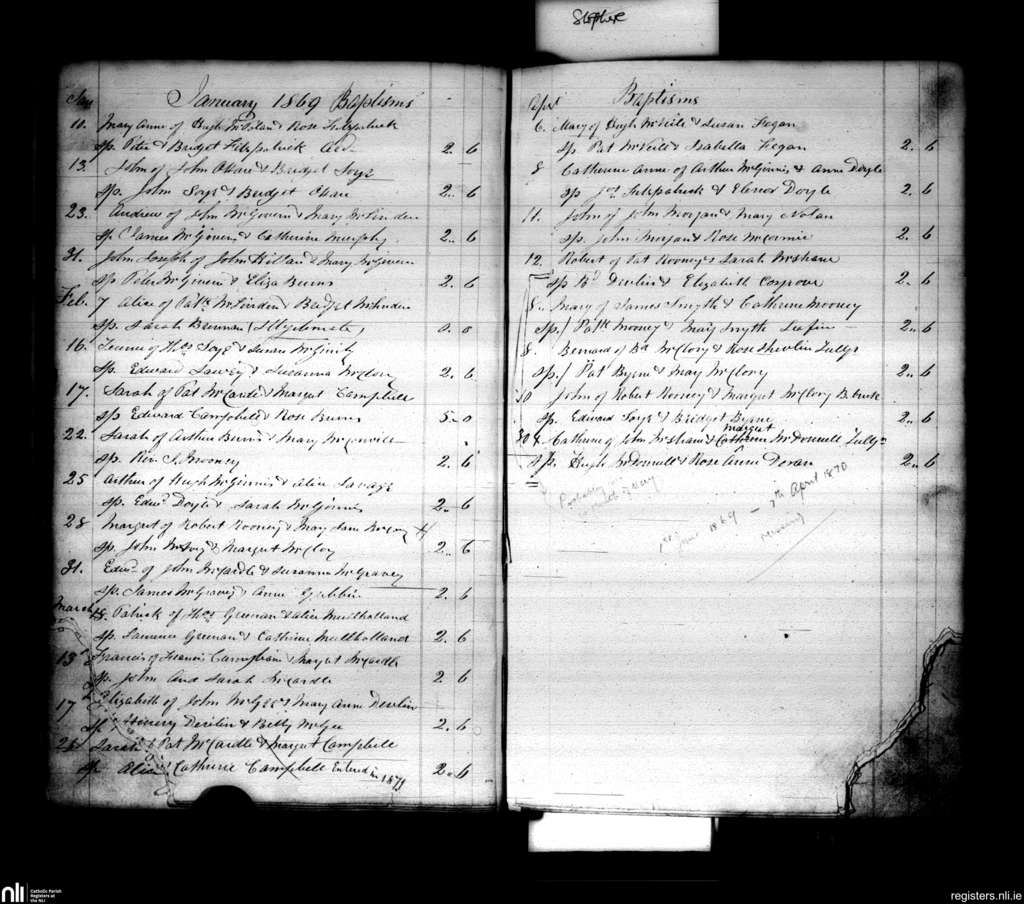 Stephen
Jany January 1869 Baptisms
11. Mary Anne of Hugh & Rose Fitzpatrick
Sp. Peter & Bridget Fitzpatrick 2. 6
13. John of John O'Hare & Bridget Soye
Sp. John Soye & Bridget O'Hare 2.. 6
23. Andrew of John McGivern & Mary McLinden
Sp. James McGivern & Catherine Murphy 2.. 6
31. John Joseph of John & Mary McGivern
Sp Peter McGivern & Eliza Burns 2. 6
Feb. 7 Alice of Patk McLinden & Bridget McLinden
Sp. Sarah Brennan 0. 0
16. of Hos Soye & Susan McGinity
Sp. Edward & Susanna McClory 2. 6
17. Sarah of Pat McCardle & Margret Campbell
Sp Edward Campbell & Rose Burns 5.. 0
22. Sarah of Arthur Burns & Mary
Sp. Rev. J. Mooney 2. 6
25 Arthur of Hugh McGinnis & Alice Savage
Sp. Edwd Doyle & Sarah McGinnis 2.. 6
28 Margret of Robert Rooney & Mary
Sp. John & Margret McClory 2.. 6
31. Edwd of John McCardle & Susanna McGraney
Sp. James McGraney & Anne Gribbin 2. 6
March
18. Patrick of Thos Greenan & Alice Mullholland
Sp. Laurence Greenan & Catherine Mullholland 2. 6
13 Francis of Francis & Margret McCardle
Sp. John and Sarah McCardle 2 6
17 Elizabeth of John McGee & Mary Anne Devlin
Sp Henery Devlin & Betty McGee 2. 6
28 Sarah of Pat McCardle & Margret Campbell
Sp Alice Catherine Campbell Entered in 1871 2.. 6
Baptisms
6. Mary of Hugh McNeile & Susan Fegan
Sp Pat McNeill & Isabella Fegan 2.. 6
8 Catherine Anne of Arthur McGinnis & Anne Doyle
Sp Jas Fitzpatrick & Elenor Doyle 2. 6
11. John of John Morgan & Mary Nolan
Sp. John Morgan & Rose McCormic 2. 6
12. Robert of Pat Rooney & Sarah McShane
Sp Devlin & Elizabeth Cosgrove 2. 6
8.. Mary of James Smyth & Catherine Mooney
Sp./ Patk Mooney & Mary Smyth 2.. 6
8. Bernard of Bd McClory & Rose Shevlin Tullys
Sp./ Pat Byrne & Mary McClory 2.. 6
30 John of Robert Rooney & Margret McClory
Sp. Edward Soye & Bridget Byrne 2.. 6
Margret
30 & Catherine of John McShane & Catherine McDonnell Tullys
Sp. Hugh McDonnell & Rose Anne Doran 2.. 6
Probably
May
1st June 1869 – 7th April 1870
missing
nli
Catholic Parish
Registers at
the NLI
registers.nli.ie